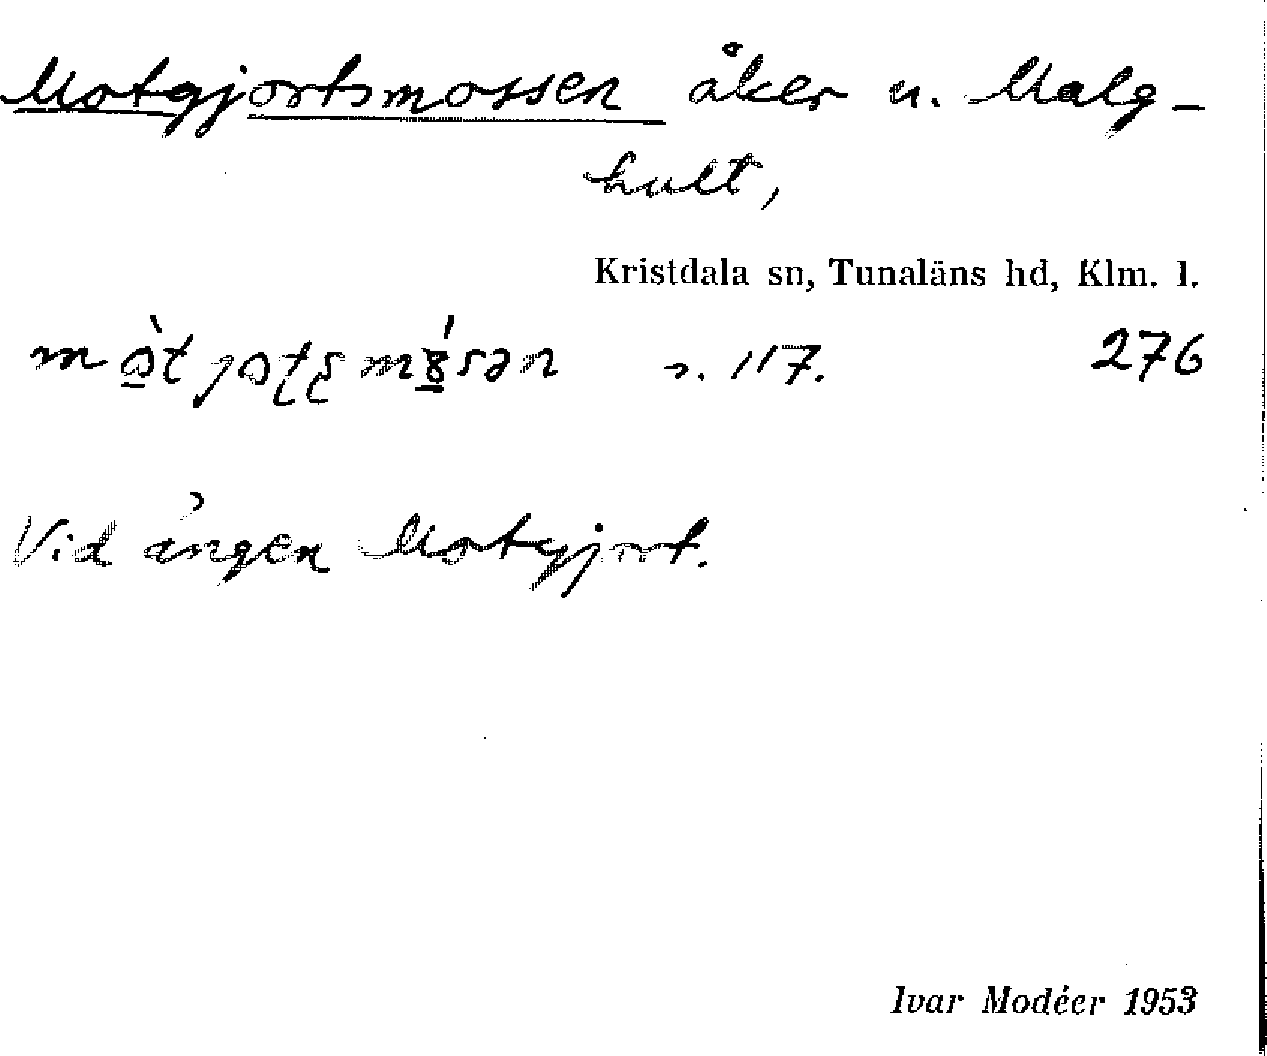 Motgjortsmossen åker u. Malg-
hult,
Kristdala sn, Tunaläns hd, Klm. l.
s. 117. 276
Vid ängen Motgjort.
Ivar Modéer 1953